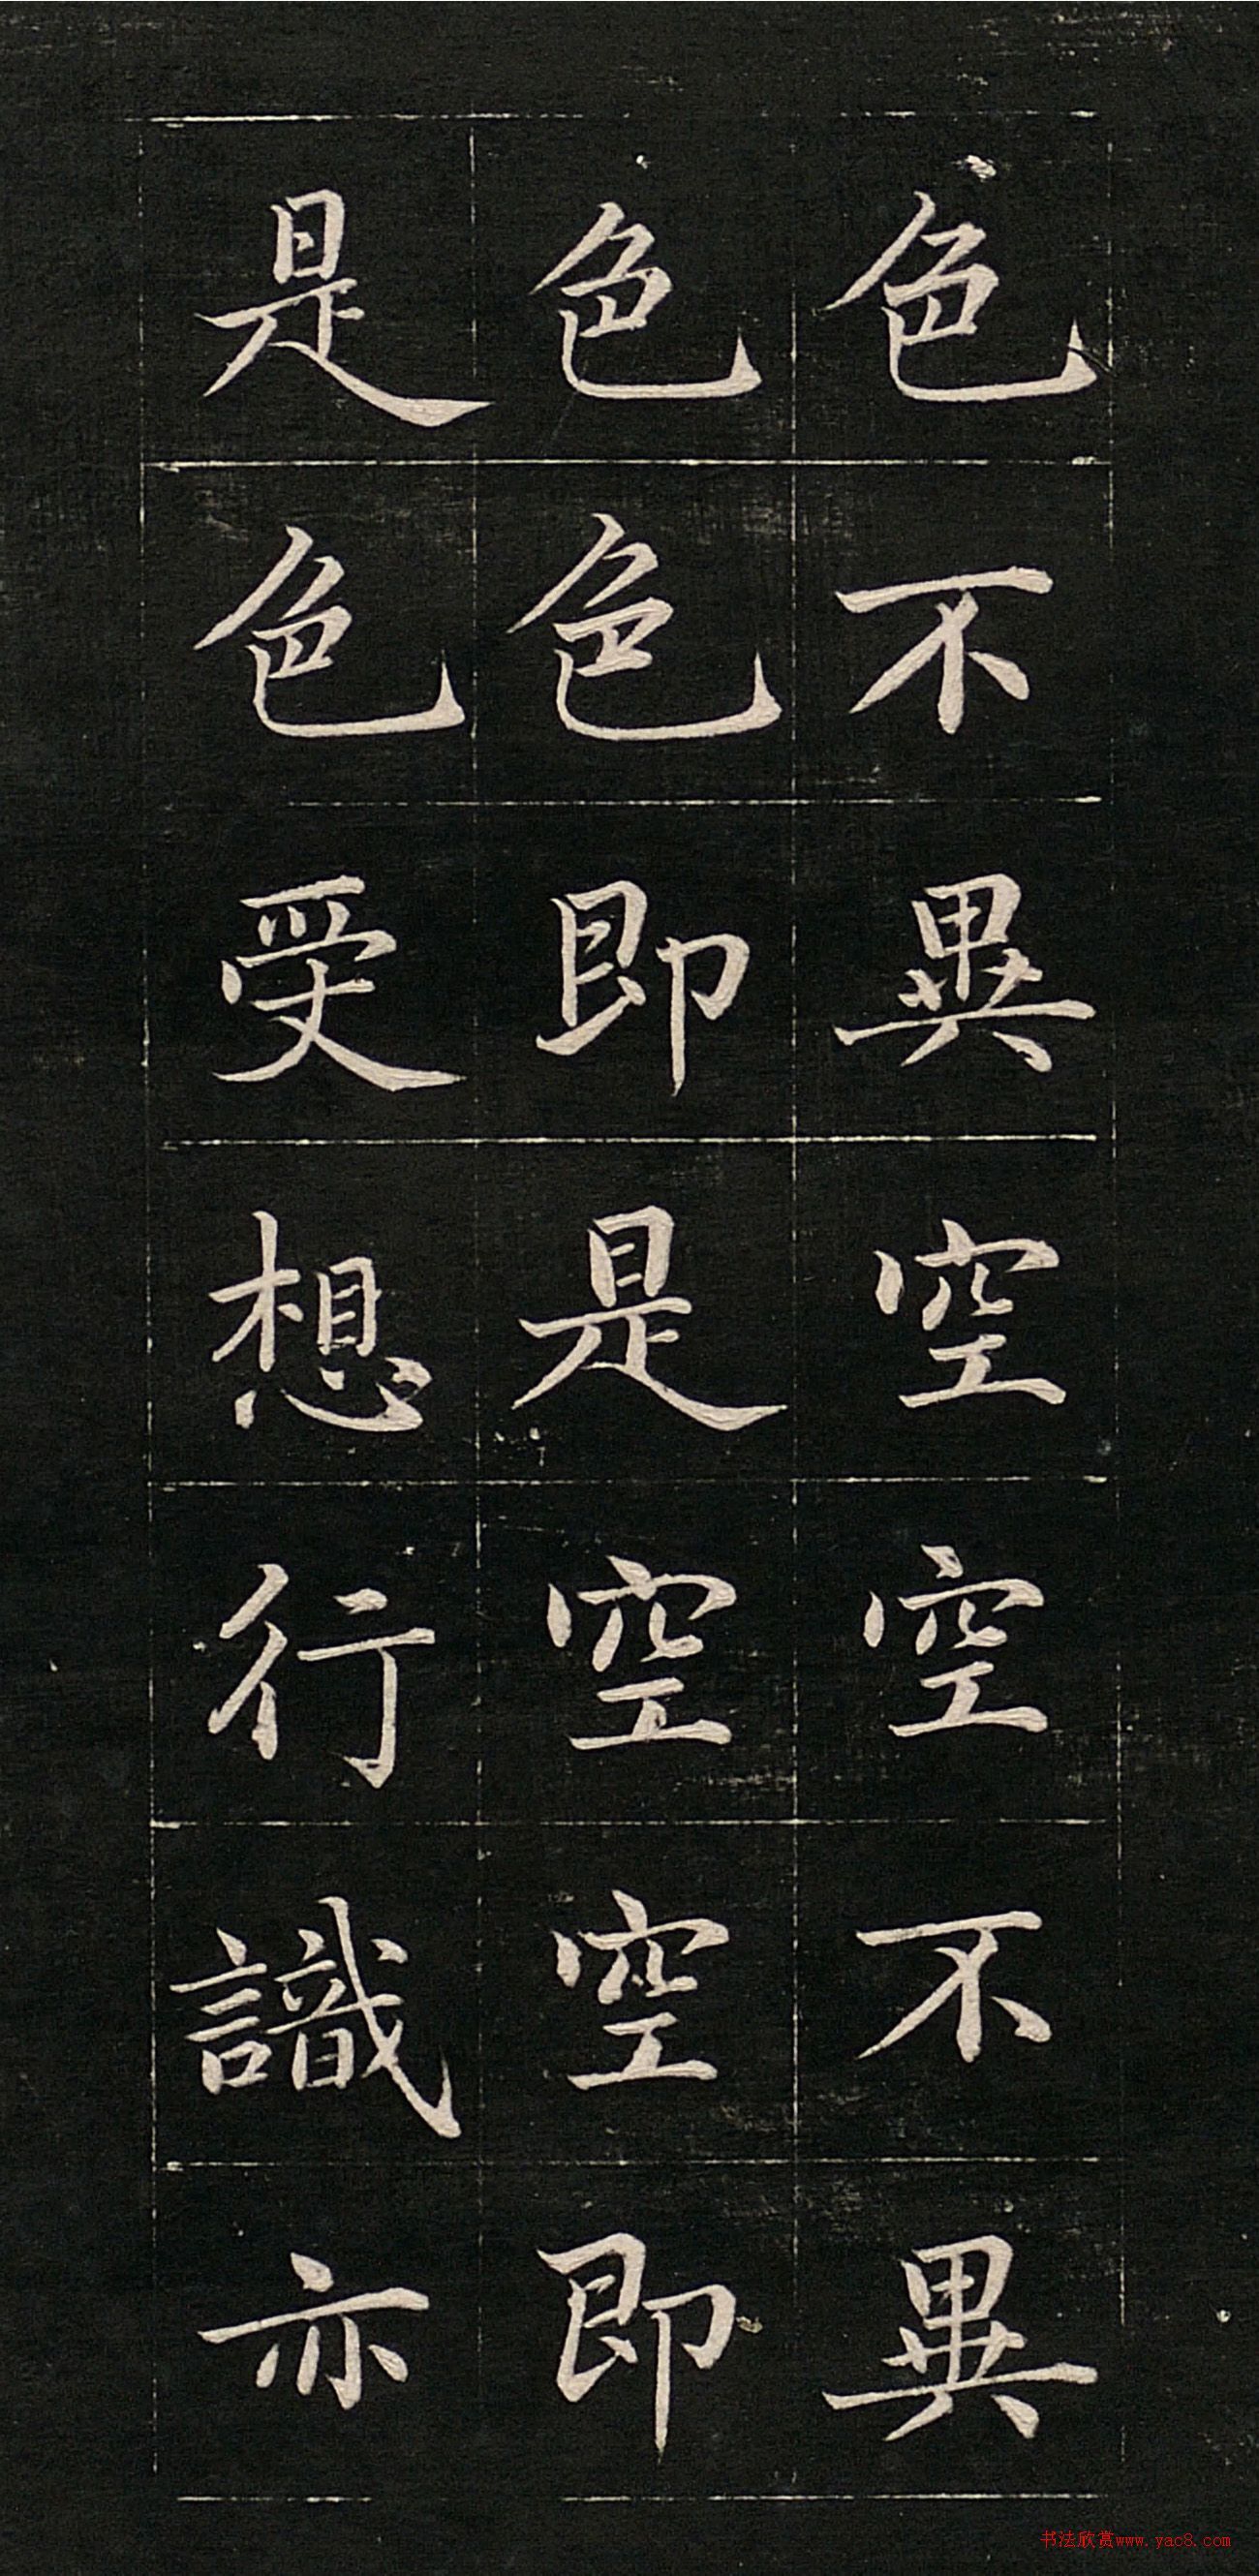 色不異空空不異
色色即是空空即
是色受想行識亦
书法欣赏www.yac8.com